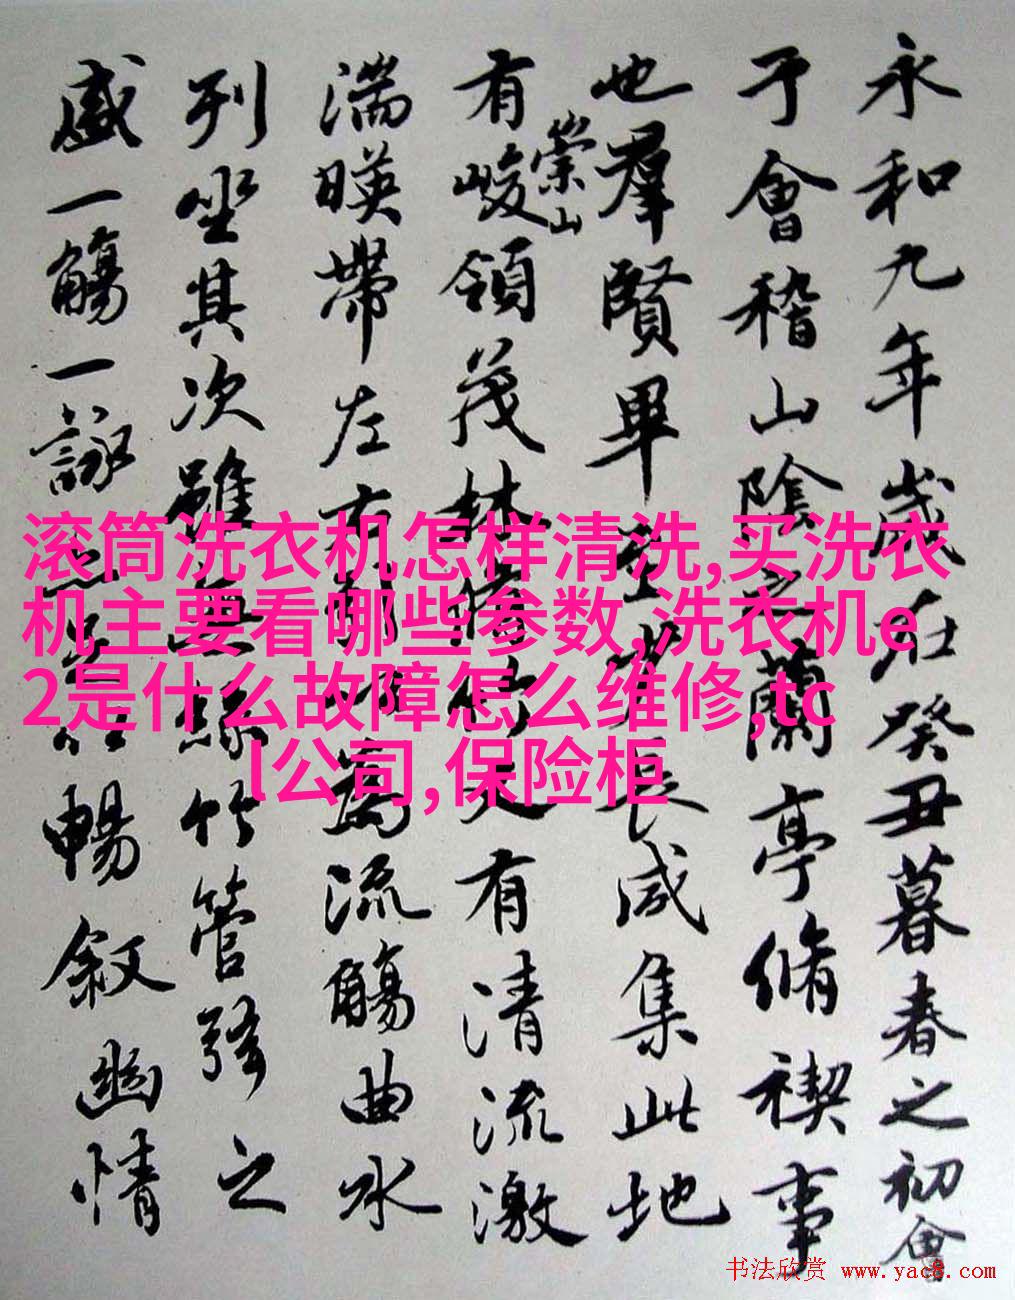 永和九年歲在癸丑暮春之初會
于會稽山陰之蘭亭脩禊事
也羣賢畢至少長咸集此地
有崇山峻領茂林脩竹又有清流激
湍暎帶左右引以為流觴曲水
列坐其次雖無絲竹管弦之
盛一觴一詠亦足以暢敘幽情
滚筒洗衣机怎样清洗,买洗衣
机主要看哪些参数,洗衣机e
2是什么故障怎么维修,tc
l公司,保险柜
书法欣赏 www.yac8.com